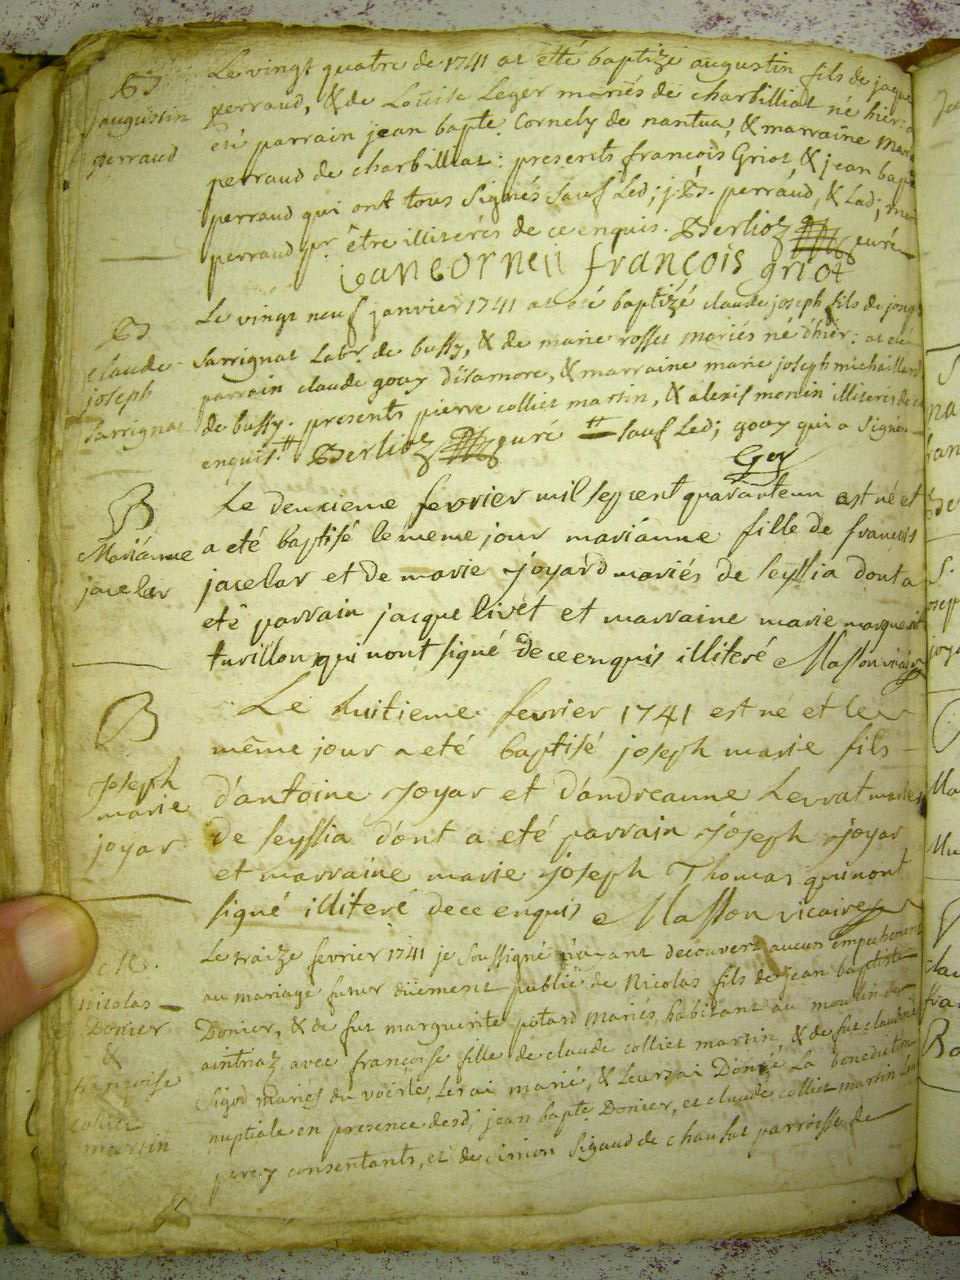 Bt
augustin
perraud
Le vingt quatre de 1741 at etté baptizé augustin fils de jaque
perraud, & de Louise Leger mariés de charbilliat né hier: a
été parrain jean bapte. Cornely de nantua, & marraine Marie
perraud de charbilliat: presents françois Griot, & jean bapte
perraud qui ont tous signés sauf Led; j. Bt. perraud, & Lad; marie
perraud pr. être illiterés de ce enquis. Berlioz curé
jean Corneli françois griot
B
claude
joseph
Sarrignat
Le vingt neuf janvier 1741 at eté baptizé claude joseph fils de joseph
Sarrignat Labr. de bussy, & de marie rosset mariés né d'hier: at eté
parrain claude goay d'isamore, & marraine marie joseph michaillard
de bussy. presents pierre colliet martin, & alexis monin illiterés de ce
enquis. Berlioz curé sauf Led; goay qui a signé
Goy
B
Mariánne
jacelar
Le deuxieme fevrier mil sept cent quarante un est né et
a eté baptisé le meme jour mariánne fille de françois
jacelar et de marie Joyard mariés de seyssia dont a
eté parrain jacque livet et marraine marie marguerit
turillon qui nont signé de ce enquis illiteré Masson vicaire
B
Joseph
marie
joyar
Le huitieme fevrier 1741 est né et le
même jour a eté baptisé joseph marie fils
d'antoine Joyar et d'andreanne Levrat mariés
de seyssia dont a eté parrain Joseph Joyar
et marraine marie Joseph Thomas qui nont
signé illiteré de ce enquis Masson vicaire
M.
nicolas
Donier
&
françoise
coliet
martin
Le traize fevrier 1741 je soussigné n'ayant decouvert aucun empechement
au mariage futur düement publié de Nicolas fils de jean baptiste
Donier, & de fut marguerite potard mariés, habitant au moulin der
aintriaz avec françoise fille de claude colliet martin, & de fut claudine
Sigod mariés du voërle, Les ai marié, & Leurs ai Donné La benediction
nuptiale en presence desd; jean bapte Donier, et claude colliet martin Leur
perez consentants, et de simon Sigaud de chausat parroisse de